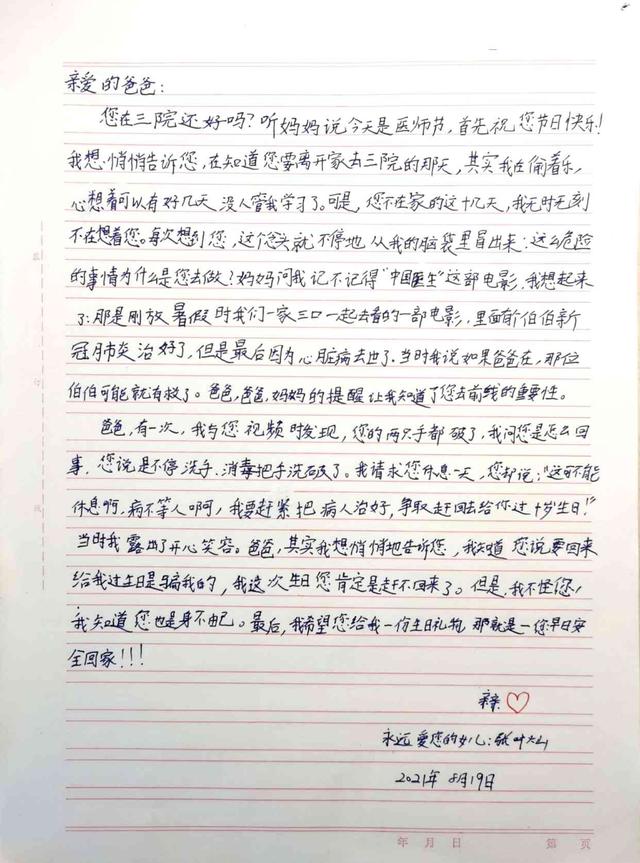 亲爱的爸爸：
您在三院还好吗？听妈妈说今天是医师节，首先祝您节日快乐！
我想悄悄告诉您，在知道您要离开家去三院的那天，其实我在偷着乐，
心想着可以有好几天没人管我学习了。可是，您不在家的这十几天，我无时无刻
不在想着您。每次想到您，这个念头就不停地从我的脑袋里冒出来：这么危险
的事情为什么是您去做？妈妈问我记不记得“中国医生”这部电影，我想起来
了：那是刚放暑假时我们一家三口一起去看的一部电影，里面有个伯伯新
冠肺炎治好了，但是最后因为心脏病去世了。当时我说如果爸爸在，那位
伯伯可能就有救了。爸爸，爸爸，妈妈的提醒让我知道了您去前线的重要性。
爸爸，有一次，我与您视频时发现，您的两只手都破了，我问您是怎么回
事，您说是不停洗手、消毒把手洗破了。我请求您休息一天，您却说：“这可不能
休息啊，病不等人啊，我要赶紧把病人治好，争取赶回去给你过十岁生日！”
当时我露出了开心笑容。爸爸，其实我想悄悄地告诉您，我知道您说要回来
给我过生日是骗我的，我这次生日您肯定是赶不回来了。但是，我不怪您，
我知道您也是身不由己。最后，我希望您给我一份生日礼物，那就是—您早日安
全回家！！！
亲亲
永远爱您的女儿：张叶
2021年8月19日
年 月 日
第 页